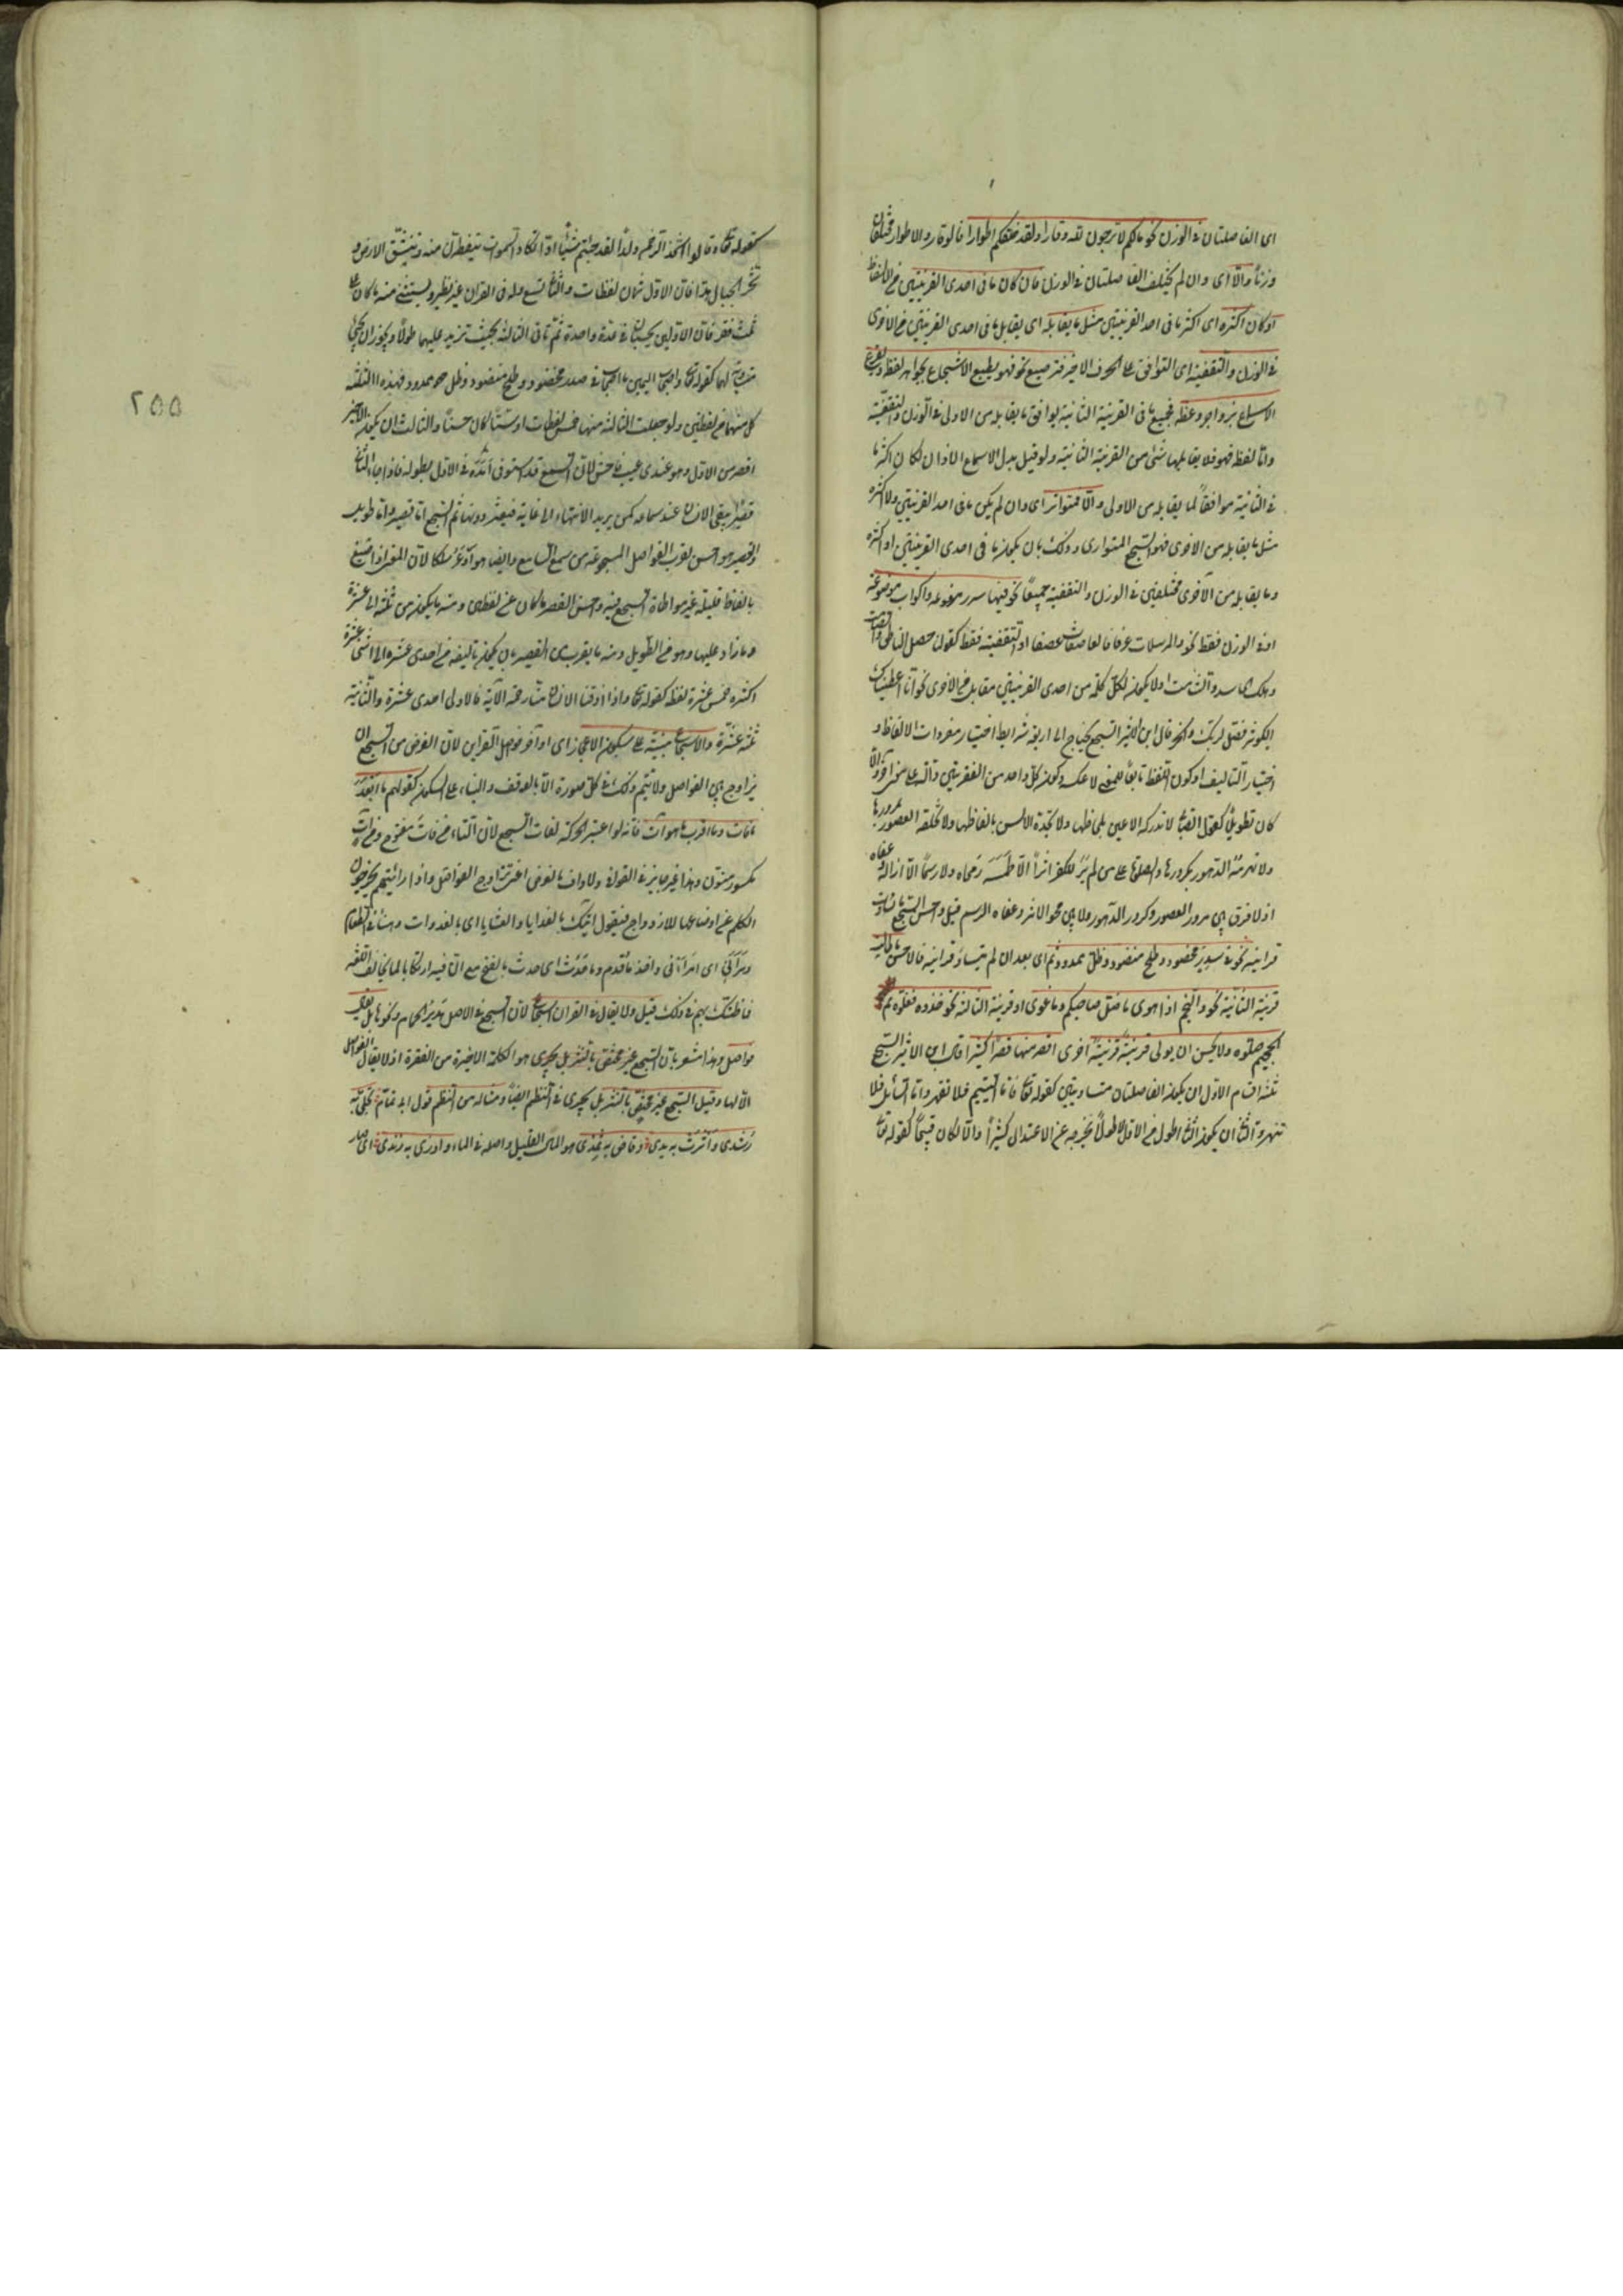 اى الفاصلتان فى الوزن نحو مالكم لا ترجون لله وقارا ولقد خلقكم اطوارا فالوقار والاطوار مختلفان
وزنا والّا اى وان لم يختلف الفاصلتان فى الوزن فان كان ما فى احدى القرينتين من الالفاظ
او كان اكثره اى اكثر ما فى احد القرينتين مثل ما يقابله اى يقابل ما فى احدى القرينتين من الاخرى
فى الوزن والتقفية اى التوافق على الحرف الاخير فترصيع نحو فهو يطبع الاسجاع بجواهر لفظه ويقرع
الاسماع بزواجر وعظه فجميع ما فى القرينة الثانية يوافق ما يقابله من الاولى فى الوزن والتقفية
وامّا لفظ فهو فلا يقابلها شئ من القرينة الثانية ولو قيل بدل الاسماع الاذان لكان اكثر ما
فى الثانية موافقا لما يقابله من الاولى والّا فمتواتر اى وان لم يكن ما فى احد القرينتين ولا اكثره
مثل ما يقابله من الاخرى فهو السجع المتوازى وذلك بان يكون ما فى احدى القرينتين او اكثره
وما يقابله من الاخرى مختلفين فى الوزن والتقفية جميعًا نحو فيها سرر مرفوعة واكواب موضوعة
او فى الوزن فقط نحو والمرسلات عرفا فالعاصفات عصفا او التقفية فقط كقولنا حصل الناطق والصامت
وهلك الحاسد والشامت او لا يكون لكل كلمة من احدى القرينتين مقابل من الاخرى نحو انّا اعطيناك
الكوثر فصل لربك وانحر قال ابن الاثير السجع يحتاج الى اربعة شرايط اختيار مفردات الالفاظ و
اختيار التأليف وكون اللفظ تابعًا للمعنى لا عكسه وكون كل واحد من الفقرتين دالّة على معنى آخر والّا
كان تطويلًا كقول الصابى لا تدركه الاعين بلحاظها ولا تحدّه الالسن بالفاظها ولا تخلقه العصور بمرورها
ولا تهرمه الدهور بكرورها والصلوة على من لم ير للكفر اثرًا الّا طمسه ومحاه ولا رسمًا الّا ازاله وعفاه
اذ لا فرق بين مرور العصور وكرور الدهور ولا بين محو الاثر وعفاه الرسم قيل واحسن السجع ما تساوت
قراينه نحو فى سدر مخضود وطلح منضود وظلّ ممدود ثم اى بعد ان لم يتساو قراينه فالاحسن ما طالت
قرينته الثانية نحو والنجم اذا هوى ما ضل صاحبكم وما غوى او قرينته الثالثة نحو خذوه فغلّوه ثم
الجحيم صلّوه ولا يحسن ان يولى قرينة قرينةً اخرى اقصر منها قصرًا كثيرا قال ابن الاثير السجع
ثلثة اقسام الاول ان يكون الفاصلتان متساويتين كقوله تعالى فامّا اليتيم فلا تقهر وامّا السائل فلا
تنهر والثانى ان يكون الثانى اطول من الاول لا طولًا يخرجه عن الاعتدال كثيرًا والّا لكان قبيحًا كقوله تعالى
كقوله تعالى وقالوا اتّخذ الرحمن ولدًا لقد جئتم شيئًا ادّا تكاد السموات يتفطرن منه وتنشقّ الارض و
تخر الجبال هدّا فان الاول ثمان لفظات والثانى تسع وله فى القران غير نظير ويستثنى منه ما كان على
ثلث فقر فان الاوليين يحسبان فى عدة واحدة ثمّ تأتى الثالثة بحيث تزيد عليهما طولًا ويجوز ان تجئ
مساوية لهما كقوله تعالى واصحاب اليمين ما اصحاب اليمين فى سدر مخضود وطلح منضود وظل ممدود فهذه الثلثة
كل منها من لفظتين ولو جعلت الثالثة منها خمس لفظات او ستّا كان حسنًا والثالث ان يكون الاخير
اقصر من الاول وهو عندى عيب فاحش لانّ السجع قد استوفى امده فى الاول بطوله فاذا جاء الثانى
قصيرًا يبقى الانسان عند سماعه كمن يريد الانتهاء الى غاية فيعثر دونها ثم السجع امّا قصير وامّا طويل
والقصير هو احسن لقرب الفواصل المسجوعة من سمع السامع وايضا هو اوعر مسلكا لان المعنى اذا صيغ
بالفاظ قليلة عسر مواطاة السجع فيه واحسن القصير ما كان من لفظين ومنه ما يكون من ثلثة الى عشرة
وما زاد عليها وهو من الطويل ومنه ما يقرب من القصير بان يكون تأليفه من احدى عشرة الى اثنتى عشرة
اكثره خمس عشرة لفظة كقوله تعالى واذا اذقنا الانسان منّا رحمة الآية فالاولى احدى عشرة والثانية
ثلثة عشرة والاسجاع مبنيّة على سكون الاعجاز اى اواخر فواصل القراين لان الغرض من السجع ان
يزاوج بين الفواصل ولا يتم ذلك فى كل صورة الّا بالوقف والبناء على السكون كقولهم ما ابعد
ما فات وما اقرب ما هو آت فانه لو اعتبر الحركة لفات السجع لان التاء من فات مفتوح ومن آت
مكسور منون وهذا غير جايز فى القوافى ولا واف بالغرض اعنى تزاوج الفواصل واذا رايتهم يخرجون
الكلم عن اوضاعها للازدواج فيقول آتيك بالغدايا والعشايا اى بالغدوات وهنأنى الطعام
ومرأنى اى امرأنى واخذ ما قدم وما حدث اى حدث بالفتح مع ان فيه ارتكابا لما يخالف اللغة
فما ظنّك بهم فى ذلك قيل ولا يقال فى القران اسجاع لان السجع فى الاصل هدير الحمام ونحوها بل يقال
فواصل وهذا مشعر بان السجع غير مختص بالنثر بل يجرى هو الكلمة الاخيرة من الفقرة اذ لا يقال الفواصل
الّا لها وقيل السجع غير مختصّ بالنثر بل يجرى فى النظم ايضًا ومثاله من النظم قول ابى تمّام تجلّى به
رشدى واثرت به يدى وفاض به ثمدى هو الماء القليل واصله فى الماء واورى به زندى اى صار
٢٥٥